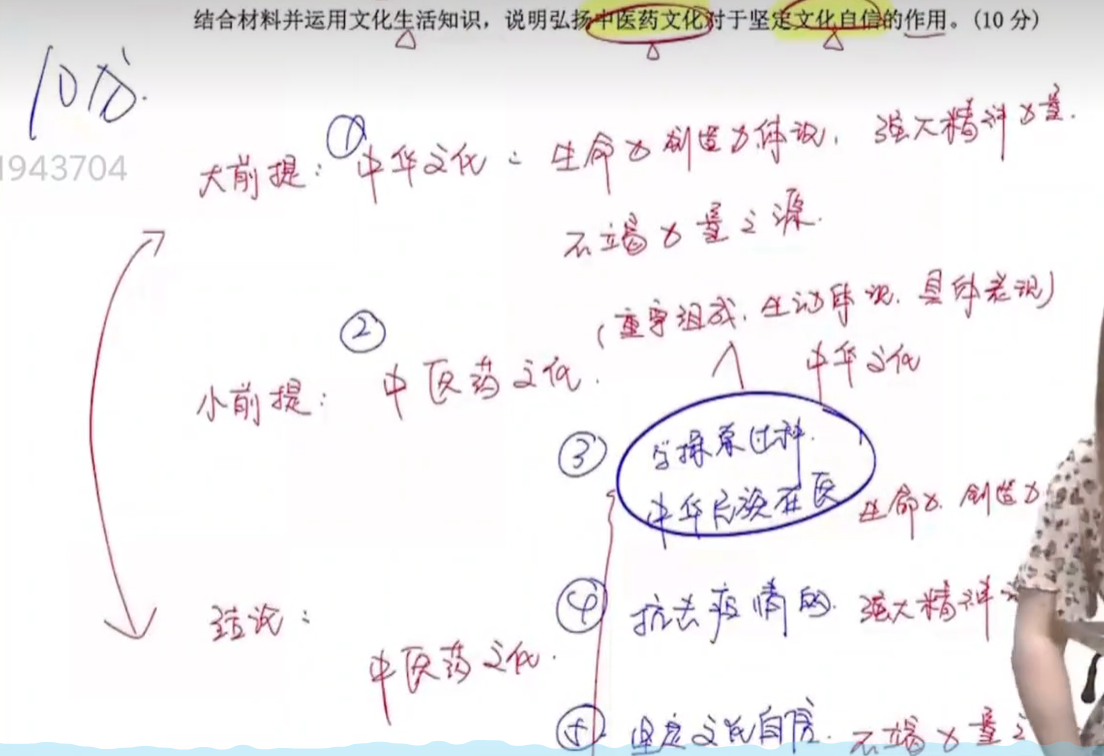 结合材料并运用文化生活知识，说明弘扬中医药文化对于坚定文化自信的作用。（10 分）
10分.
1943704
大前提：① 中华文化：生命力创造力体现，强大精神力量.
不竭力量之源.
（重要组成，生动体现，具体表现）
小前提：② 中医药文化. 中华文化
③
中华民族在医 生命力 创造力
④ 抗击疫情的 强大精神
结论：
中医药文化.
⑤ 坚定文化自信. 不竭力量之